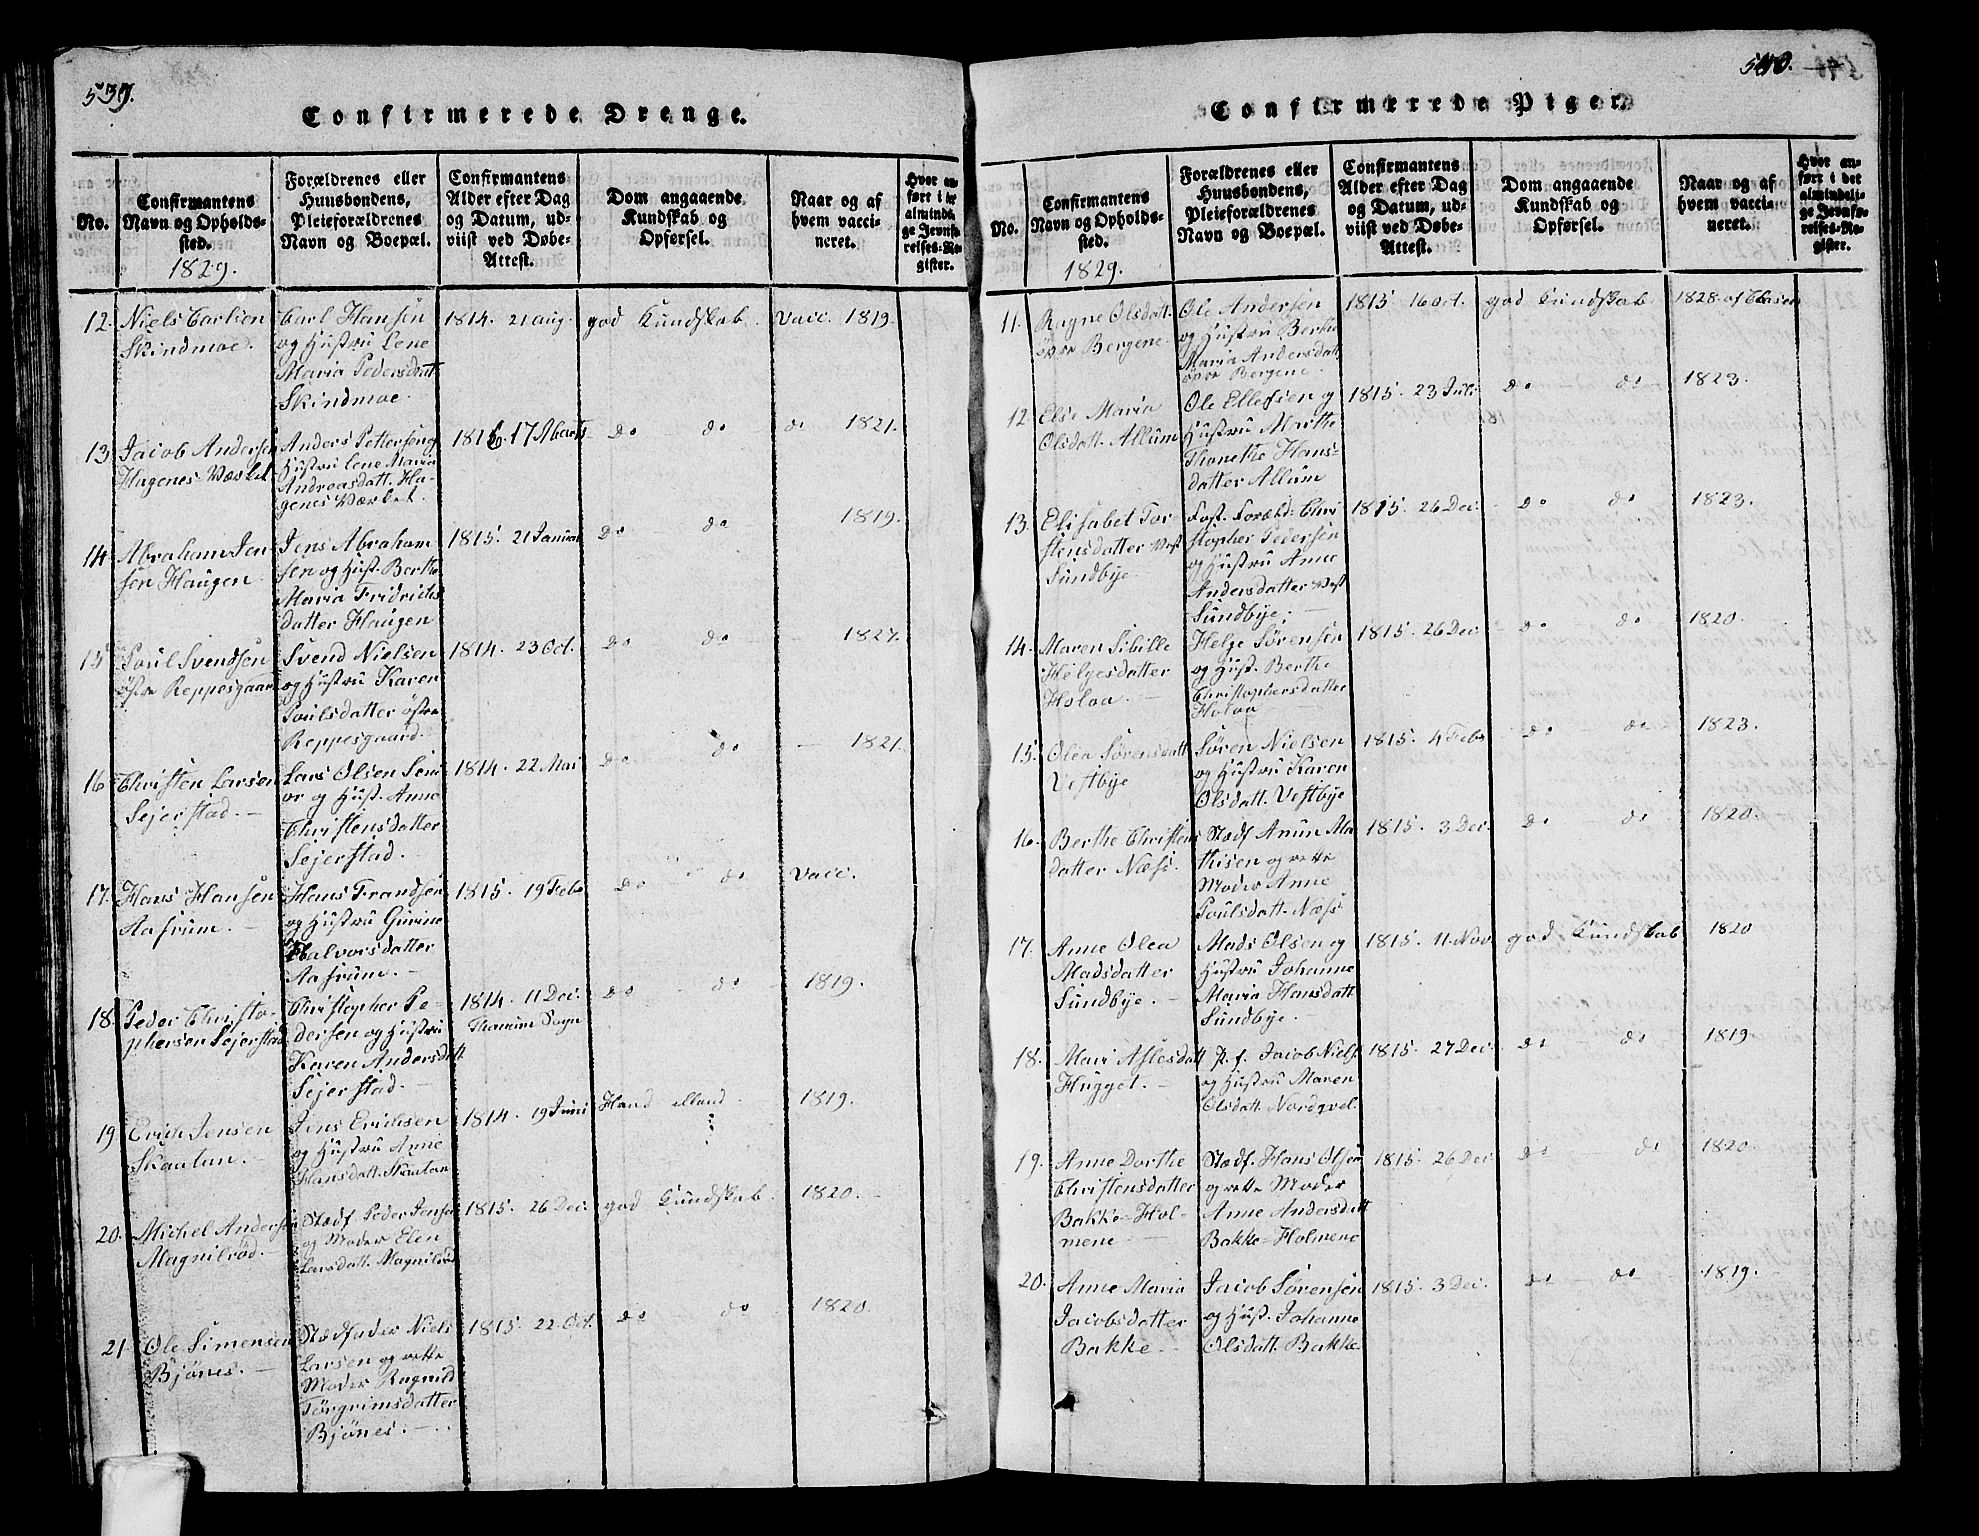 539.
Confirmerede Drenge.
No.
Confirmantens
Navn og Opholds-
sted.
1829.
Forældrenes eller
Huusbondens,
Pleieforældrenes
Navn og Boepæl.
Confirmantens
Alder efter Dag
og Datum, ud-
viist ved Døbe-
Attest.
Dom angaaende
Kundskab og
Opførsel.
Naar og af
hvem vacci-
neret.
Hvor an-
ført i det
almindeli-
ge Jevnfø-
relses-Re-
gister.
12. Niels Carlsen
Skindmoe.
Carl Hansen
og Hustru Lene
Maria Pedersdatt
Skindmoe.
1814. 21 aug.
god Kundskab.
Vacc. 1819.
13. Jacob Andersen
Hagenes Værket
Anders Pettersen og
Hustru Lene Maria
Andreasdatt. Ha-
genes Værket.
1816. 17
do do
do 1821.
14. Abraham Jen
sen Haugen
Jens Abraham
sen og Hust. Berthe
Maria Fridrichs
datter Haugen
1815. 21 Januar
do do
1819.
15 Poul Svendsen
østre Reppesgaard
Svend Nielsen
og Hustru Karen
Poulsdatter østre
Reppesgaard.
1814. 23 Oct.
do do
1827.
16 Christen Larsen
Sejerstad.
Lars Olsen Seni
or og Hust. Anne
Christensdatter
Sejerstad.
1814. 22 Mai
do do
1821.
17. Hans Hansen
Aasrum.
Hans Frandsen
og Hustru Gurine
Halvorsdatter
Aasrum.
1815. 19 Febr
do do
Vacc.
18. Peder Christo-
phersen Sejerstad
Christopher Pe-
dersen og Hustru
Karen Andersdatt
Sejerstad.
1814. 11 Dec.
Thanum Sogn
do do
1819.
19. Erich Jensen
Skautun.
Jens Erichsen
og Hustru Anne
Hansdatt. Skautun
1814. 19 Juni
1819.
20. Michel Andersen
Magnilrød.
Stedf. Peder Jensen
og Moder Elen
Larsdatt. Magnilrød
1815. 26 Dec.
god Kundskab.
1820.
21. Ole Simensen
Bjønes.
Stedfader Niels
Larsen og rette
Moder Ragnild
Torgrimsdatter
Bjønes.
1815. 22 Oct.
do do
1820.
540.
Confirmerede Piger.
No.
Confirmantens
Navn og Opholds-
sted.
1829.
Forældrenes eller
Huusbondens,
Pleieforældrenes
Navn og Boepæl.
Confirmantens
Alder efter Dag
og Datum, ud-
viist ved Døbe-
Attest.
Dom angaaende
Kundskab og
Opførsel.
Naar og af
hvem vacci-
neret.
Hvor an-
ført i det
almindeli-
ge Jevnfø-
relses-Re-
gister.
11. Ragne Olsdatt.
øvre Bergene.
Ole Andersen
og Hustru Berthe
Maria Andersdatt
øvre Bergene.
1815. 16 oct.
god Kundskab.
1828. af Clasen
12. Else Maria
Olsdatt. Allum
Ole Ellefsen og
Hustru Marthe
Thonette Hans-
datter Allum
1815. 23 Juli
do do
1823.
13. Elisabet Tor
stensdatter Vest
Sundbye.
Fost. Foræld. Chri
stopher Pedersen
og Hustru Anne
Andersdatter Vest
Sundbye.
1815. 26 Dec.
do do
1823.
14. Maren Sibille
Helgesdatter
Holoa.
Helge Sørensen
og Hust. Berthe
Christophersdatter
Holoa
1815. 26 Dec
do do
1820.
15. Olea Sørensdatt
Vestbye
Søren Nielsen
og Hustru Karen
Olsdatt. Vestbye
1815. 4 Febr
do do
1823.
16. Berthe Christens
datter Næss.
Stedf Anun Ma
thisen og rette
Moder Anne
Poulsdatt. Næss
1815. 3 Dec.
do do
1820.
17. Anne Olea
Madsdatter
Sundbye.
Mads Olsen og
Hustru Johanne
Maria Hansdatt
Sundbye.
1815. 11. Nov
god Kundskab
1820
18. Mari Aslesdatt
Hugget.
P. f. Jacob Niels.
og Hustru Maren
Olsdatt. Nordqvel.
1815. 27 Dec.
do do
1819
19. Anne Dorthe
Christensdatter
Bakke-Hol-
mene.
Stedf. Hans Olsen
og rette Moder
Anne Andersdatt
Bakke-Holmene
1815. 26 Dec
do do
1820.
20. Anne Maria
Jacobsdatter
Bakke.
Jacob Sørensen
og Hust. Johanne
Olsdatt. Bakke
1815. 3 Dec.
do do
1819.